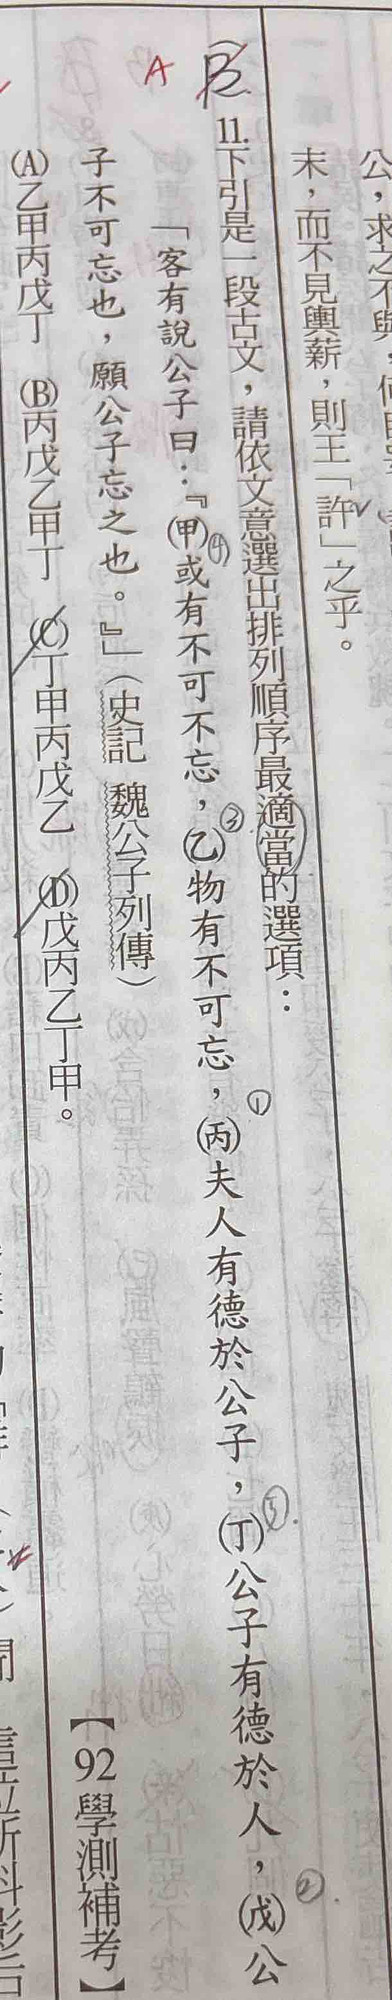 公，求之不與，
末，而不見輿薪，則王「許」之乎。
B
A
11.下引是一段古文，請依文意選出排列順序最適當的選項：
「客有說公子曰：『(甲)或有不可不忘，(乙)物有不可忘，(丙)夫人有德於公子，(丁)公子有德於人，(戊)公
④ ③ ① ⑤ ②
子不可忘也，願公子忘之也。』」（史記 魏公子列傳）
【92 學測補考】
(A)乙甲丙戊丁 (B)丙戊乙甲丁 (C)丁甲丙戊乙 (D)戊丙乙丁甲。